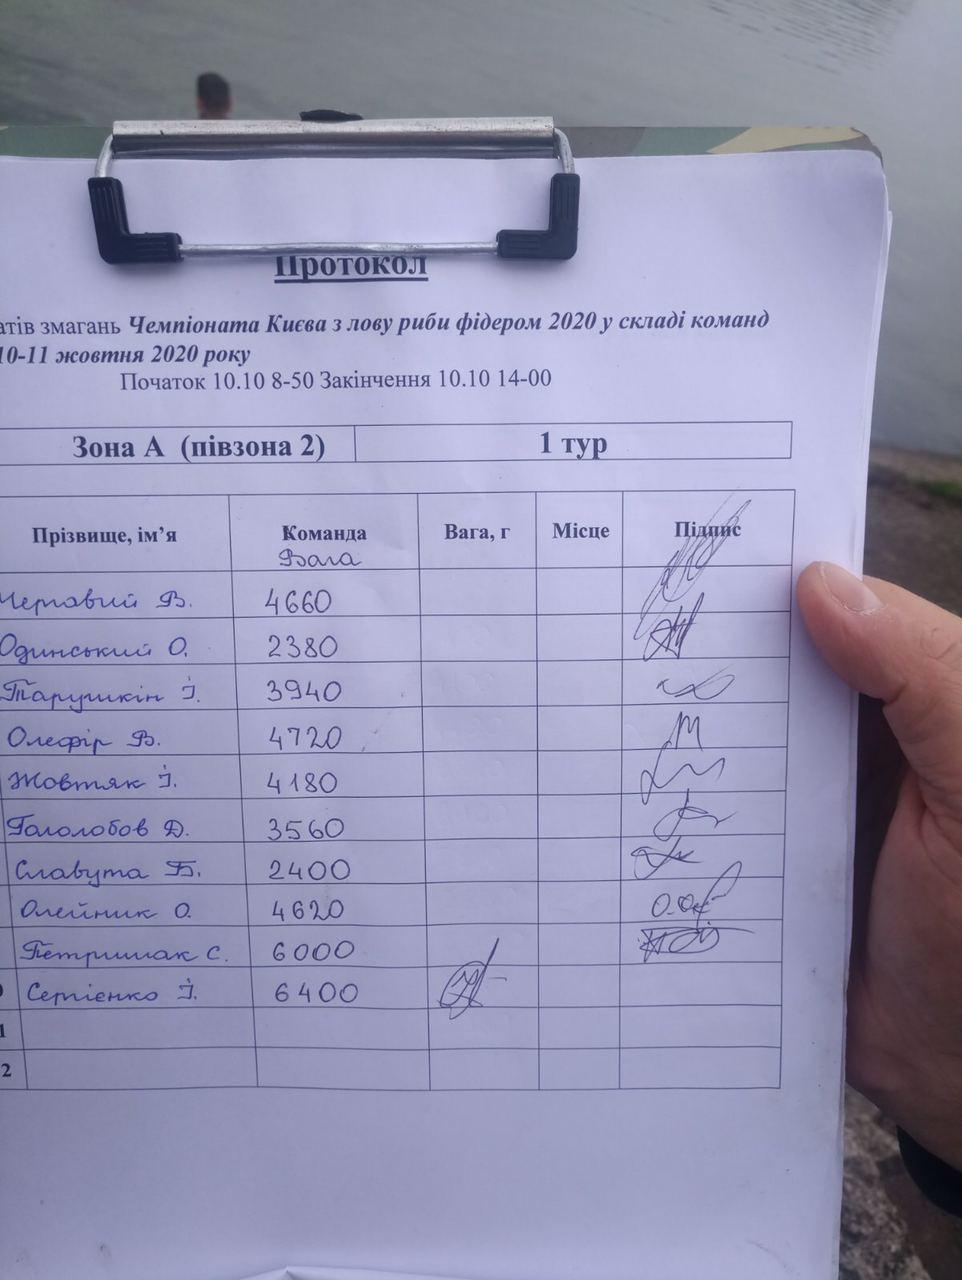 Протокол
атів змагань Чемпіоната Києва з лову риби фідером 2020 у складі команд
10-11 жовтня 2020 року
Початок 10.10 8-50 Закінчення 10.10 14-00
Зона А (півзона 2) 1 тур
Прізвище, ім’я Команда Вага, г Місце Підпис
Вага
В. 4660
Одинський О. 2380
Тарушкін І. 3940
Олефір В. 4720
Жовтяк І. 4180
Гололобов Д. 3560
Славута Б. 2400
Олейник О. 4620
Петришак С. 6000
Сергієнко І. 6400
1
2